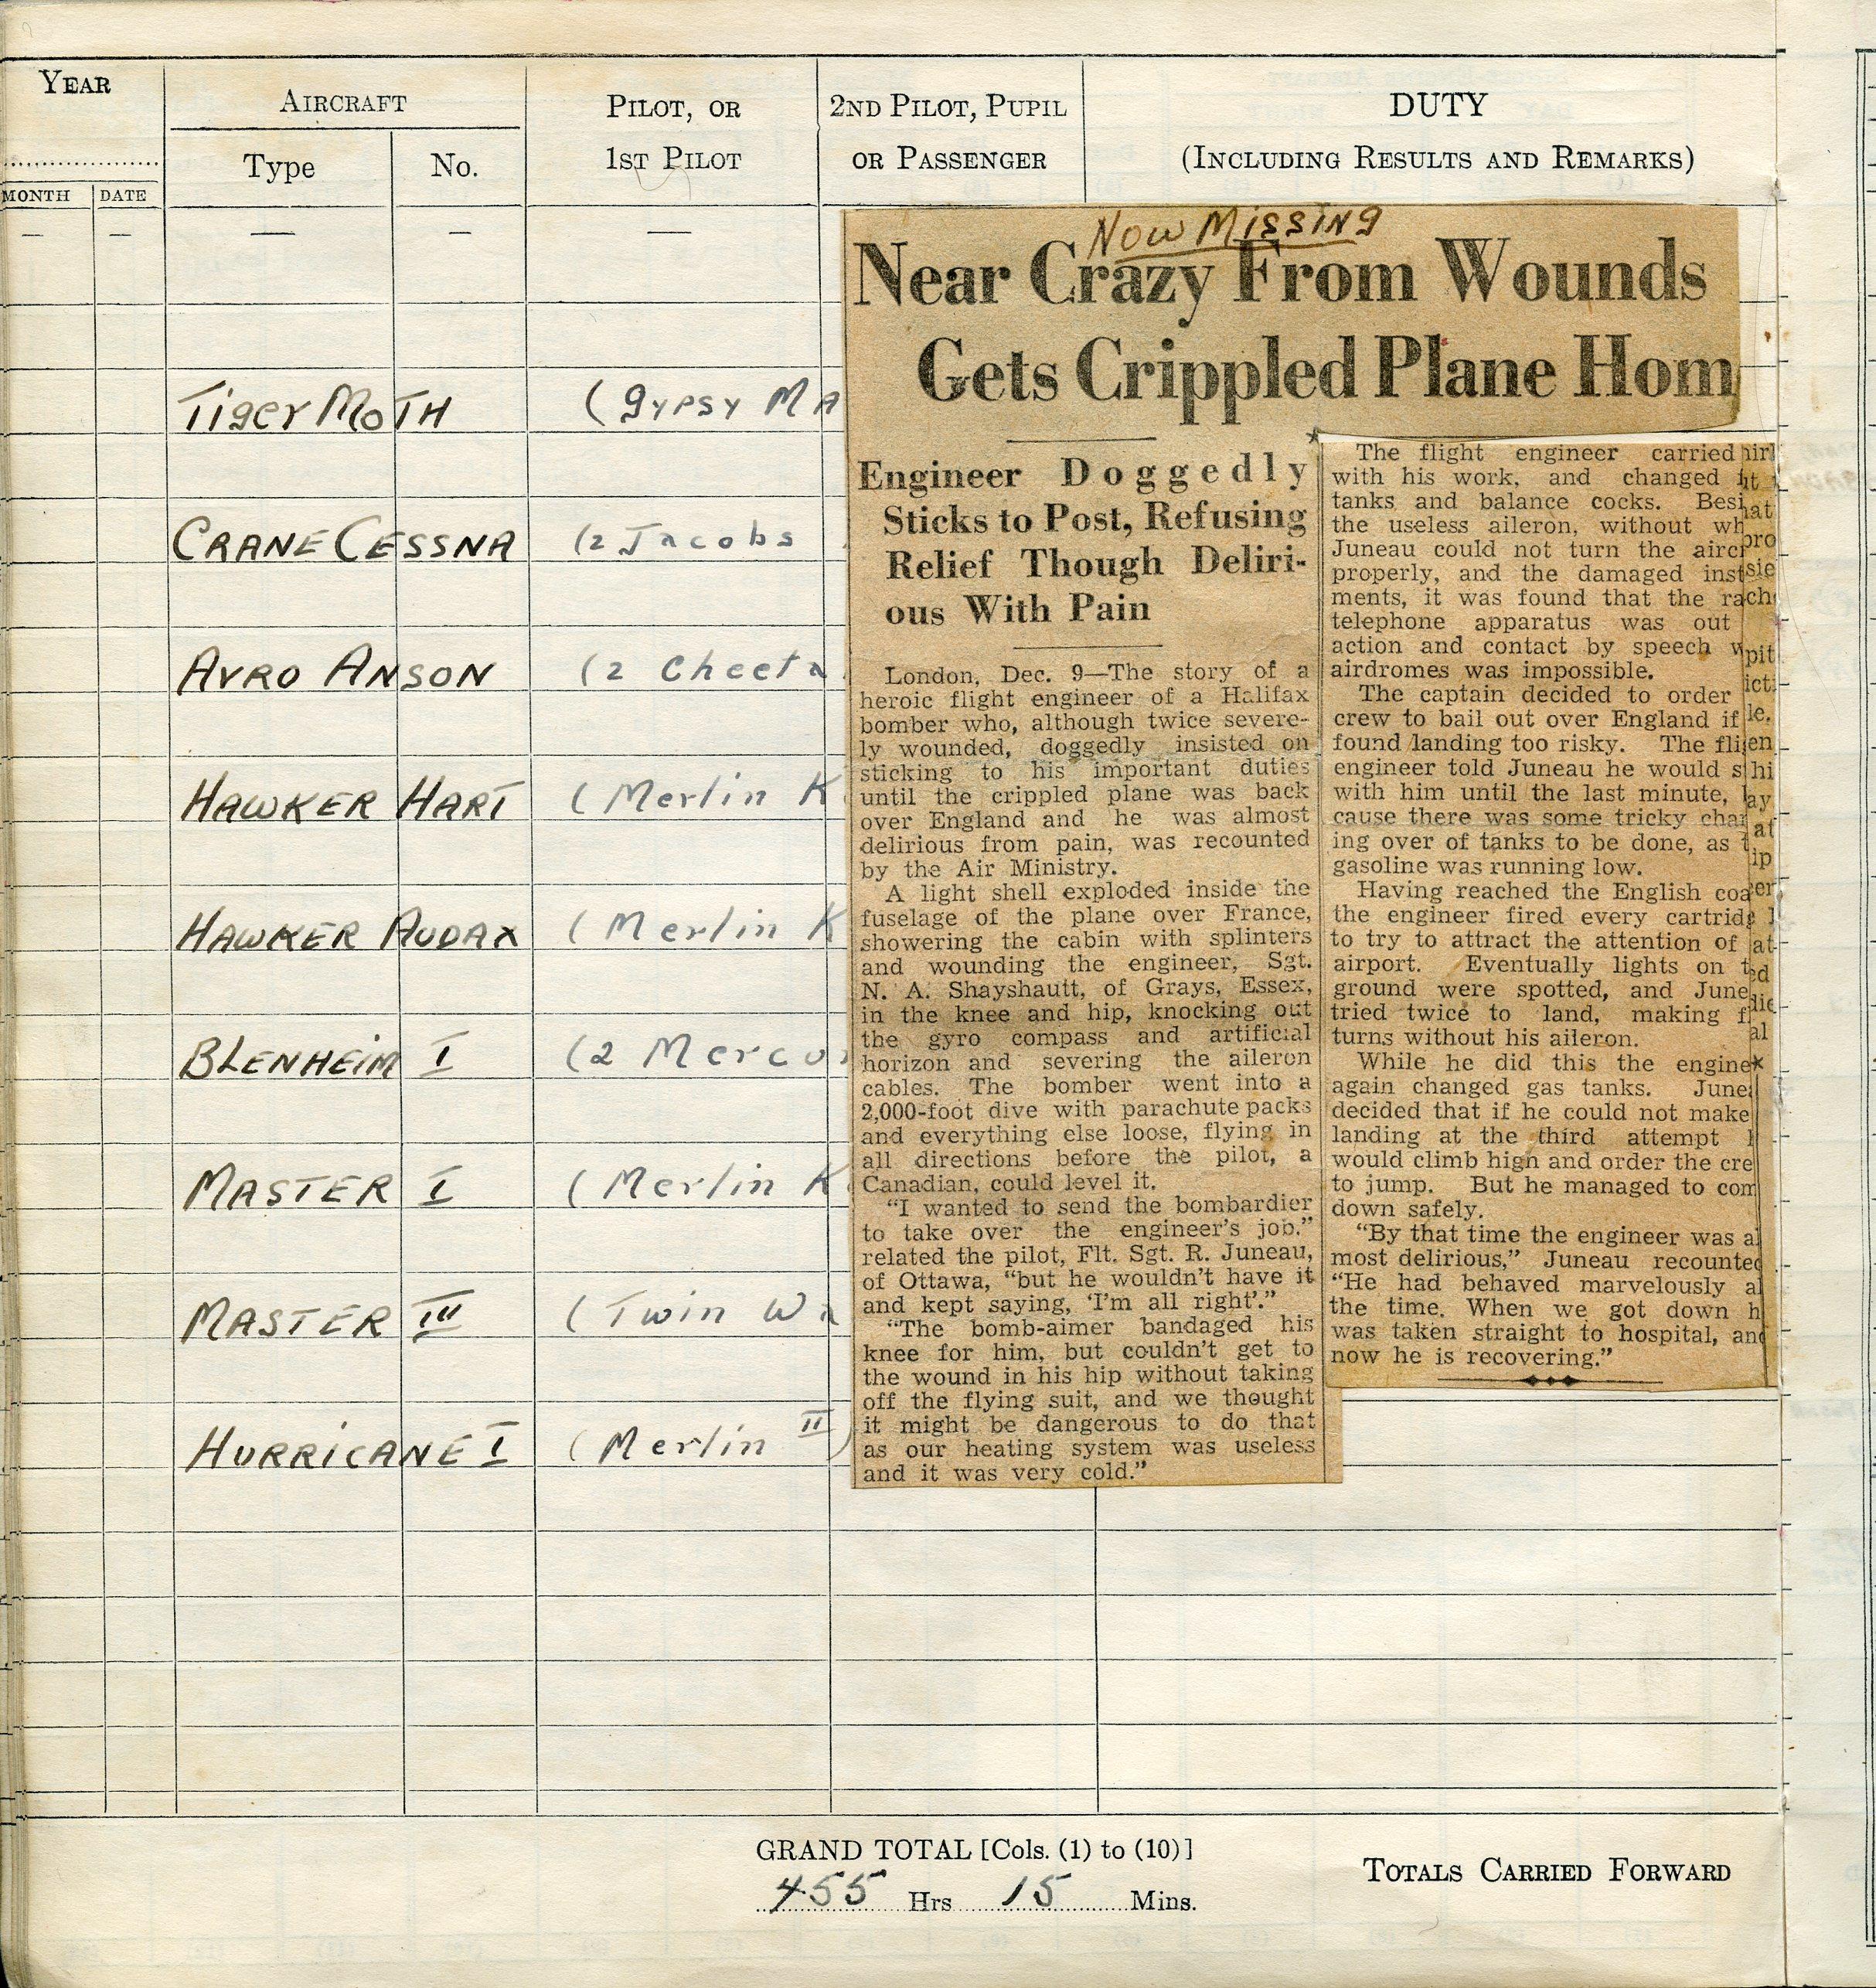 YEAR
AIRCRAFT
PILOT, OR
1ST PILOT
2ND PILOT, PUPIL
OR PASSENGER
DUTY
(INCLUDING RESULTS AND REMARKS)
Type
No.
MONTH
DATE
— — — — —
Tiger MoTH (gypsy MA
CRANE CESSNA (2 Jacobs
AVRO ANSON (2 Cheeta
HAWKER HART (Merlin K
HAWKER AUDAX (Merlin K
BLENHEIM I (2 Mercu
MASTER I (Merlin K
MASTER III (Twin Wa
HURRICANE I (Merlin II)
Now Missing
Near Crazy From Wounds
Gets Crippled Plane Hom
Engineer Doggedly
Sticks to Post, Refusing
Relief Though Deliri-
ous With Pain
London, Dec. 9—The story of a
heroic flight engineer of a Halifax
bomber who, although twice severe-
ly wounded, doggedly insisted on
sticking to his important duties
until the crippled plane was back
over England and he was almost
delirious from pain, was recounted
by the Air Ministry.
A light shell exploded inside the
fuselage of the plane over France,
showering the cabin with splinters
and wounding the engineer, Sgt.
N. A. Shayshautt, of Grays, Essex,
in the knee and hip, knocking out
the gyro compass and artificial
horizon and severing the aileron
cables. The bomber went into a
2,000-foot dive with parachute packs
and everything else loose, flying in
all directions before the pilot, a
Canadian, could level it.
"I wanted to send the bombardier
to take over the engineer's job."
related the pilot, Flt. Sgt. R. Juneau,
of Ottawa, "but he wouldn't have it
and kept saying, 'I'm all right'."
"The bomb-aimer bandaged his
knee for him, but couldn't get to
the wound in his hip without taking
off the flying suit, and we thought
it might be dangerous to do that
as our heating system was useless
and it was very cold."
The flight engineer carried
with his work, and changed
tanks and balance cocks. Besi
the useless aileron, without wh
Juneau could not turn the airc
properly, and the damaged inst
ments, it was found that the ra
telephone apparatus was out
action and contact by speech w
airdromes was impossible.
The captain decided to order
crew to bail out over England if
found landing too risky. The fli
engineer told Juneau he would s
with him until the last minute,
cause there was some tricky chan
ing over of tanks to be done, as t
gasoline was running low.
Having reached the English coa
the engineer fired every cartridg
to try to attract the attention of
airport. Eventually lights on t
ground were spotted, and June
tried twice to land, making f
turns without his aileron.
While he did this the engine
again changed gas tanks. June
decided that if he could not make
landing at the third attempt h
would climb high and order the cre
to jump. But he managed to com
down safely.
"By that time the engineer was al
most delirious," Juneau recounted
"He had behaved marvelously al
the time. When we got down h
was taken straight to hospital, and
now he is recovering."
GRAND TOTAL [Cols. (1) to (10)]
455 Hrs 15 Mins.
TOTALS CARRIED FORWARD